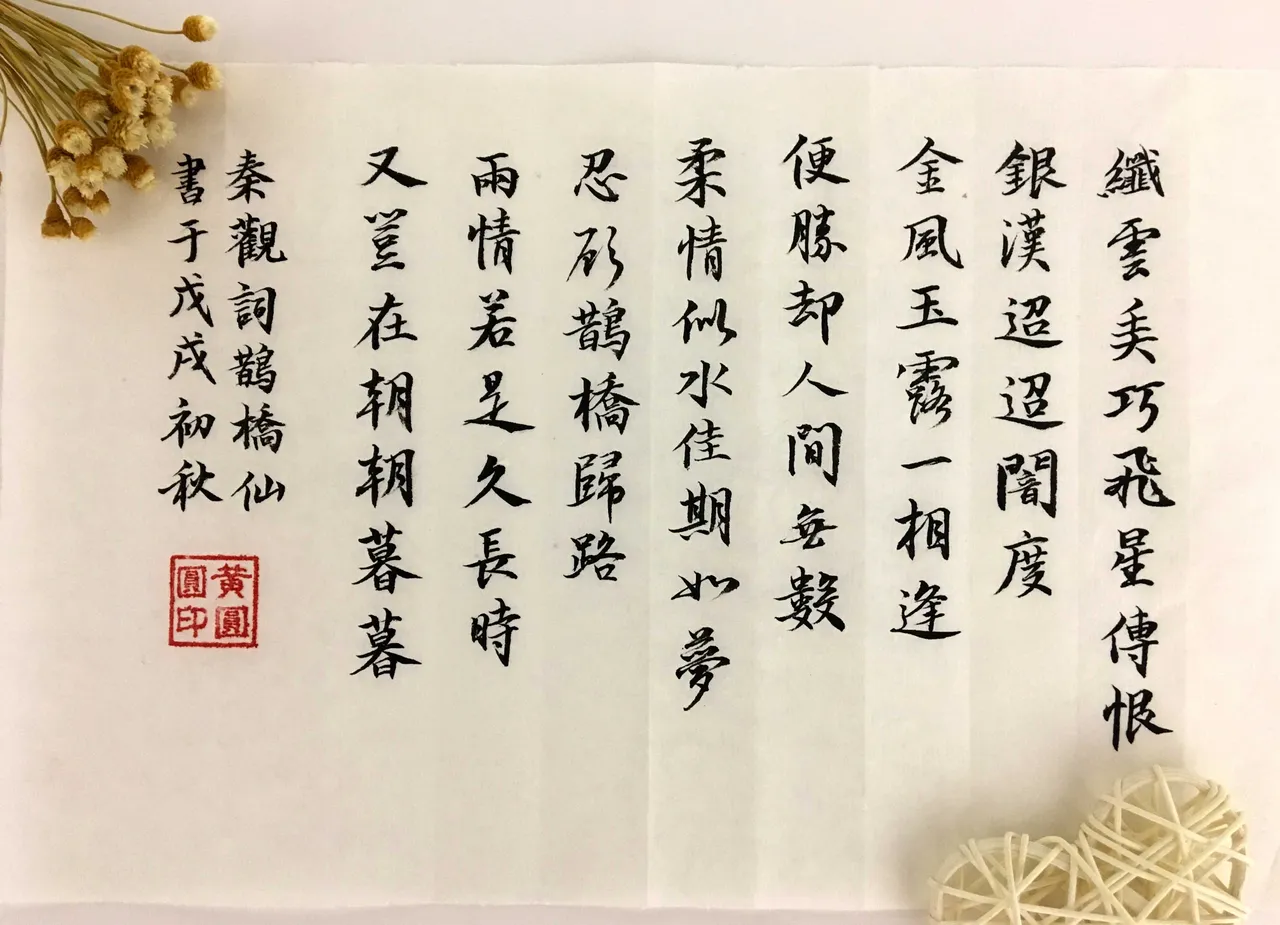 纖雲弄巧飛星傳恨
銀漢迢迢闇度
金風玉露一相逢
便勝却人間無數
柔情似水佳期如夢
忍顧鵲橋歸路
兩情若是久長時
又豈在朝朝暮暮
秦觀詞鵲橋仙
書于戊戌初秋
黃圓
圓印